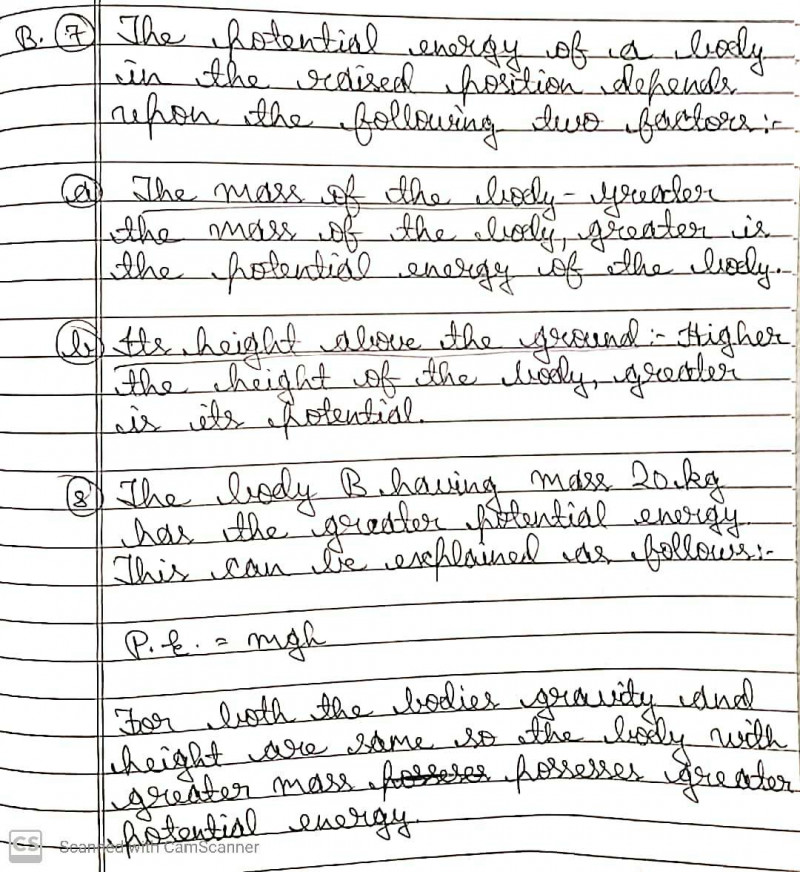 B. 7 The potential energy of a body
in the raised position depends
upon the following two factors:-
a The mass of the body - greater
the mass of the body, greater is
the potential energy of the body.
b Its height above the ground :- Higher
the height of the body, greater
is its potential.
8 The body B having mass 20 kg
has the greater potential energy.
This can be explained as follows:-
P.E. = mgh
For both the bodies gravity and
height are same so the body with
greater mass posseses possesses greater
potential energy.
CS Scanned with CamScanner